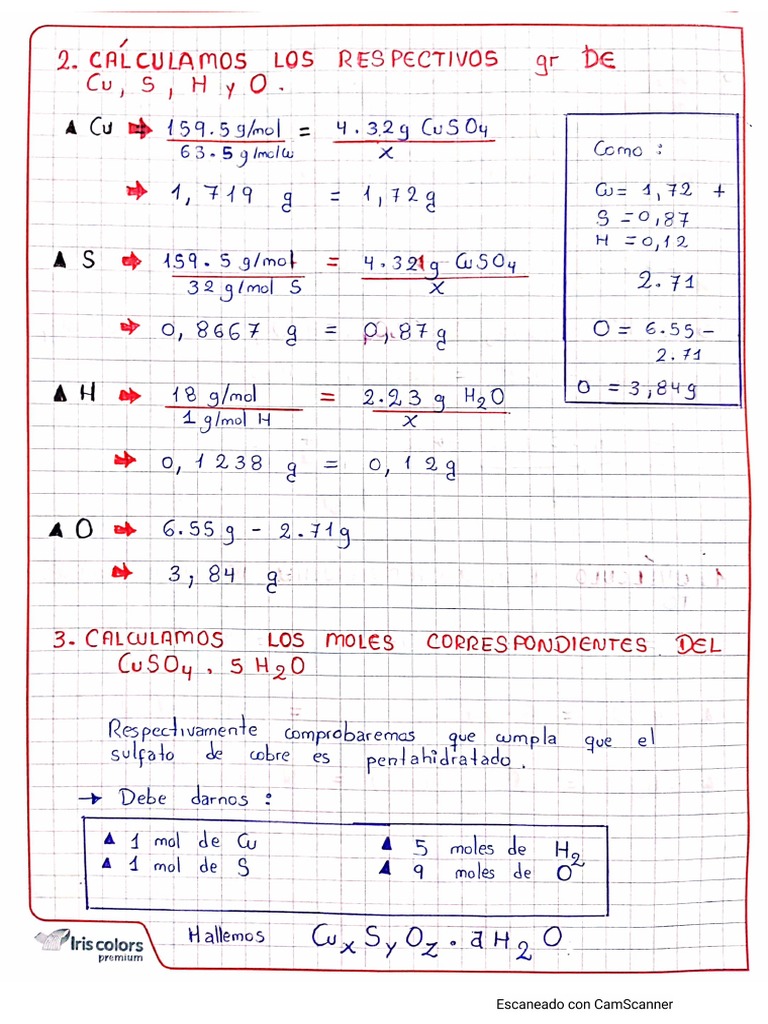 2. CÁLCULAMOS LOS RESPECTIVOS gr DE
Cu, S, H y O.
▲ Cu ⇒ 159.5 g/mol = 4.32g CuSO4
63.5 g/molCu x
⇒ 1,719 g = 1,72g
▲ S ⇒ 159.5 g/mol = 4.321g CuSO4
32 g/mol S x
⇒ 0,8667 g = 0,87g
▲ H ⇒ 18 g/mol = 2.23 g H2O
1 g/mol H x
⇒ 0,1238 g = 0,12g
▲ O ⇒ 6.55g - 2.71g
⇒ 3,84 g
Como :
Cu= 1,72 +
S =0,87
H =0,12
2.71
O = 6.55-
2.71
O = 3,84g
3. CALCULAMOS LOS MOLES CORRESPONDIENTES DEL
CuSO4 . 5H2O
Respectivamente comprobaremos que cumpla que el
sulfato de cobre es pentahidratado.
→ Debe darnos :
▲ 1 mol de Cu ▲ 5 moles de H2
▲ 1 mol de S ▲ 9 moles de O
Hallemos CuxSyOz . aH2O
Iris colors
premium
Escaneado con CamScanner